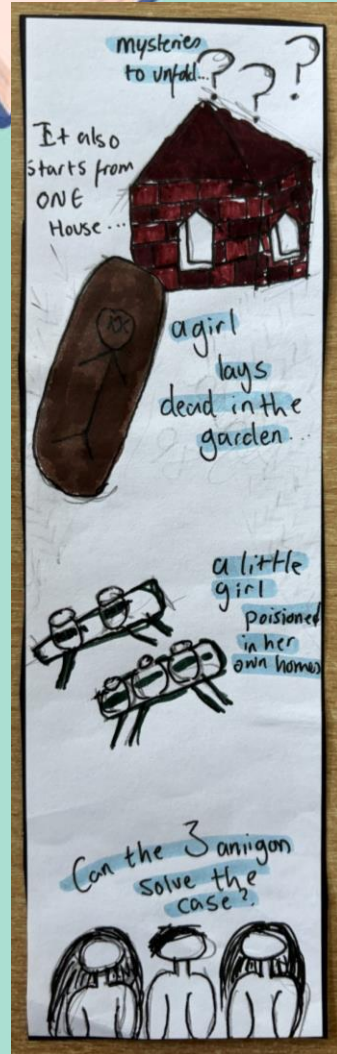 mysteries
to unfold...
? ? ?
It also
starts from
ONE
House...
a girl
lays
dead in the
garden...
a little
girl
poisioned
in her
own homes
Can the 3 amiigon
solve the
case?